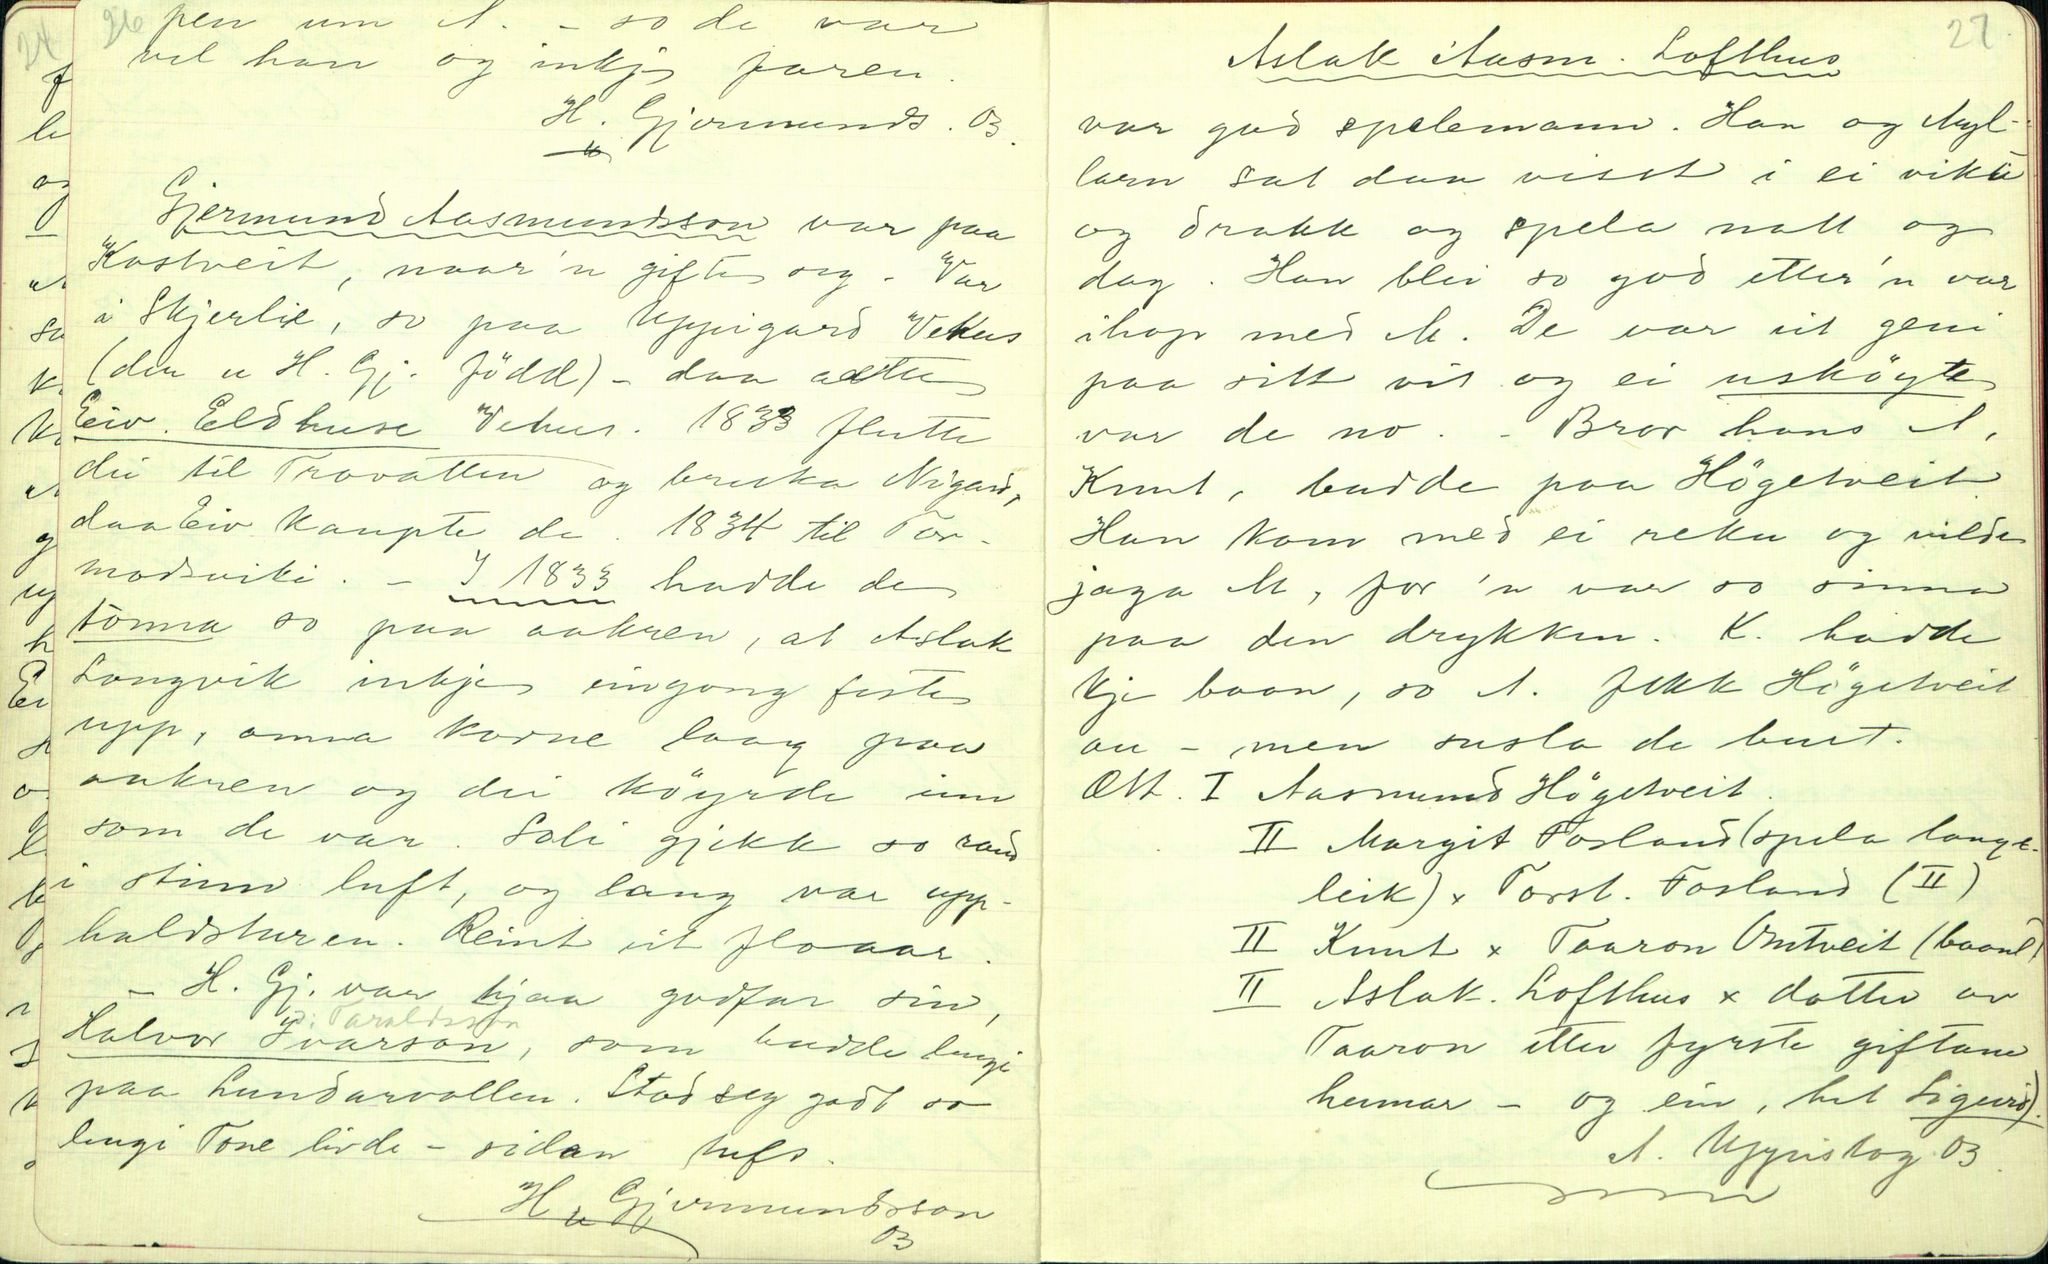 26
pen um A. - so de var
vel han og inkje faren.
H. Gjermunds. 03.
Gjermund Aasmundsson var paa
Kostveit, naar'n gifte seg. Var
i Skjerlie, so paa Uppigard Vehus
(den u H. Gj. född) - daa aatte
Eiv. Eldhuse Vehus. 1833 flutte
dei til Trovatten og bruka Nigard,
daa Eiv kaupte de. 1834 til Tor-
modsviki. - I 1833 hadde de
tonna so paa aakren, at Aslak
Longvik inkje eingong feste
upp, anna korne laag paa
aakren og dei köyrde inn
som de var. Soli gjekk so raud
i stinn luft, og lang var upp-
haldsturen. Reint eit floaar.
- H. Gj. var hjaa godfar sin,
Taraldsson
Halvor Ivarson, som budde lengi
paa Lundarvollen. Stod seg godt so
lengi Tone livde - sidan tufs.
H. Gjermundsson
03
27.
Aslak Aasm. Lofthus
var god spelemann. Han og Myl-
larn sat daa visst i ei viku
og drakk og spela natt og
dag. Han blei so god etter'n var
ihop med M. De var eit geni
paa sitt vis og ei usköyte
var de no. - Bror hans A,
Knut, budde paa Högetveit.
Han kom med ei reku og vilde
jaga M, for 'n var so sinna
paa den drykken. K. hadde
kje baan, so A. fekk Högetveit
au - men susla de burt.
Ætt. I Aasmund Högetveit.
II Margit Fosland (spela lange-
leik) x Torst. Fosland (II)
II Knut x Taaron Omtveit (baanl)
II Aslak Lofthus x dotter av
Taaron etter fyrste giftame
hennar - og ein, het Sigurd).
A. Uppistog 03.